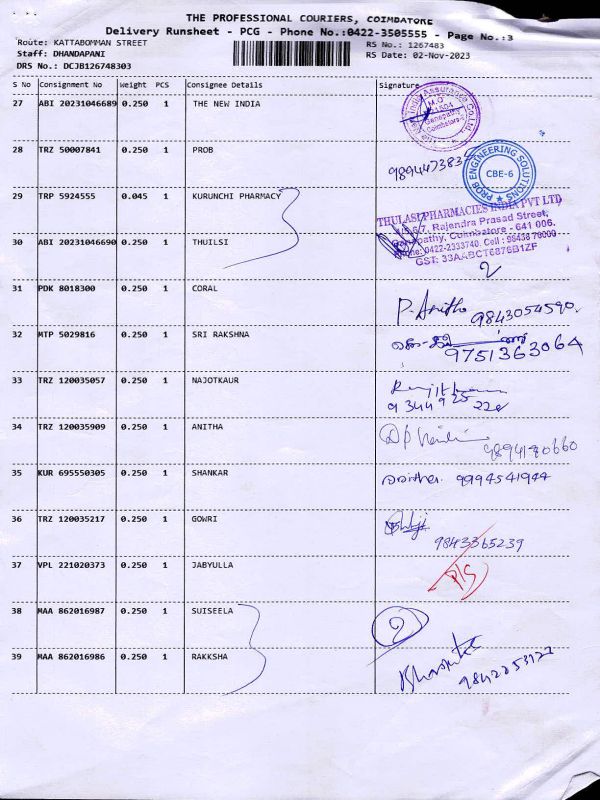 THE PROFESSIONAL COURIERS, COIMBATORE
Delivery Runsheet - PCG - Phone No.:0422-3505555 - Page No.:3
Route: KATTABOMMAN STREET
RS No.: 1267483
Staff: DHANDAPANI
RS Date: 02-Nov-2023
DRS No.: DCJB126748303
S No Consignment No Weight PCS Consignee Details Signature
27 ABI 20231046689 0.250 1 THE NEW INDIA
India Assurance Co.Ltd.
M.O
Ganapathy
Coimbatore
28 TRZ 50007841 0.250 1 PROB
PROB ENGINEERING SOLUTIONS
CBE-6
29 TRP 5924555 0.045 1 KURUNCHI PHARMACY
THULASI PHARMACIES INDIA PVT LTD
Rajendra Prasad Street,
Ganapathy, Coimbatore - 641 006.
Phone: 0422-2333740, Cell : 98438 76000
GST: 33AABCT6876B1ZF
30 ABI 20231046690 0.250 1 THUILSI
2
31 PDK 8018300 0.250 1 CORAL
P. Anitha 9843054590.
32 MTP 5029816 0.250 1 SRI RAKSHNA
9751363064
33 TRZ 120035057 0.250 1 NAJOTKAUR
9344925228
34 TRZ 120035909 0.250 1 ANITHA
9894180660
35 KUR 695550305 0.250 1 SHANKAR
9994541944
36 TRZ 120035217 0.250 1 GOWRI
9843365239
37 VPL 221020373 0.250 1 JABYULLA
P/S
38 MAA 862016987 0.250 1 SUISEELA
2
39 MAA 862016986 0.250 1 RAKKSHA